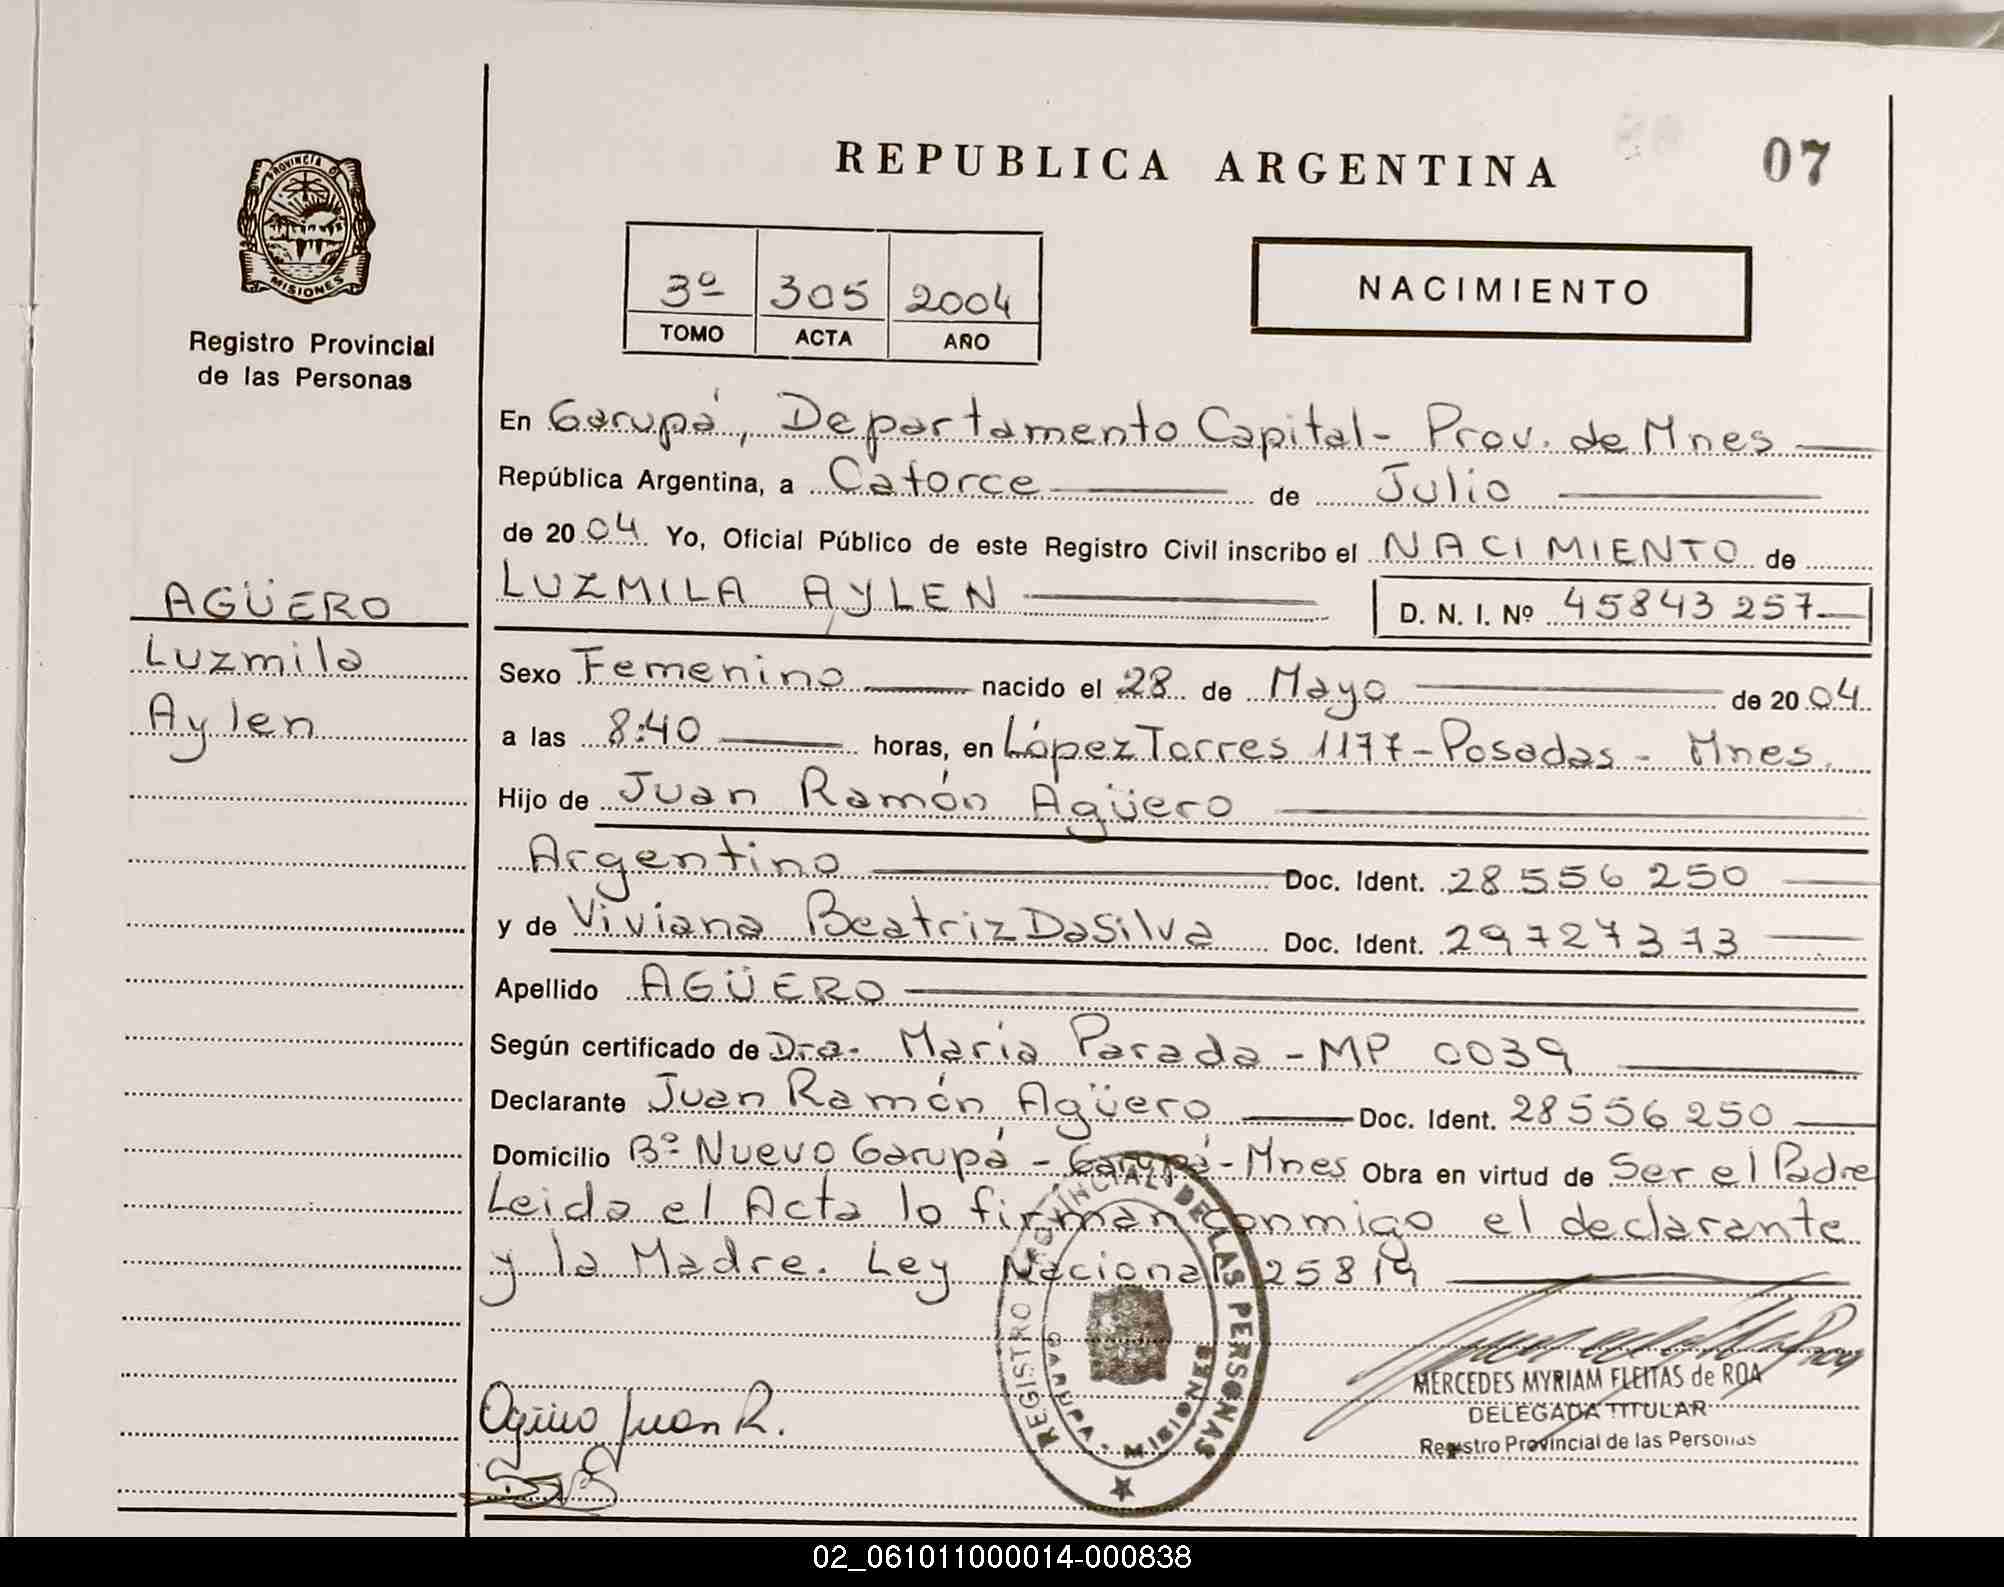 REPUBLICA ARGENTINA
07
PROVINCIA DE
MISIONES
Registro Provincial
de las Personas
3º 305 2004
TOMO ACTA AÑO
NACIMIENTO
En Garupá, Departamento Capital - Prov. de Mnes
República Argentina, a Catorce de Julio
de 2004 Yo, Oficial Público de este Registro Civil inscribo el NACIMIENTO de
LUZMILA AYLEN D. N. I. Nº 45843257
AGÜERO
Luzmila
Aylen
Sexo Femenino nacido el 28 de Mayo de 2004
a las 8:40 horas, en López Torres 1177 - Posadas - Mnes.
Hijo de Juan Ramón Agüero
Argentino Doc. Ident. 28556250
y de Viviana Beatriz DaSilva Doc. Ident. 29727373
Apellido AGÜERO
Según certificado de Dra. María Parada - MP 0039
Declarante Juan Ramón Agüero Doc. Ident. 28556250
Domicilio Bº Nuevo Garupá - Garupá - Mnes Obra en virtud de Ser el Padre
Leida el Acta lo firman conmigo el declarante
y la Madre. Ley Nacional 25819
REGISTRO PROVINCIAL DE LAS PERSONAS
GARUPA - MISIONES
Agüero Juan R.
MERCEDES MYRIAM FLEITAS de ROA
DELEGADA TITULAR
Registro Provincial de las Personas
02_061011000014-000838